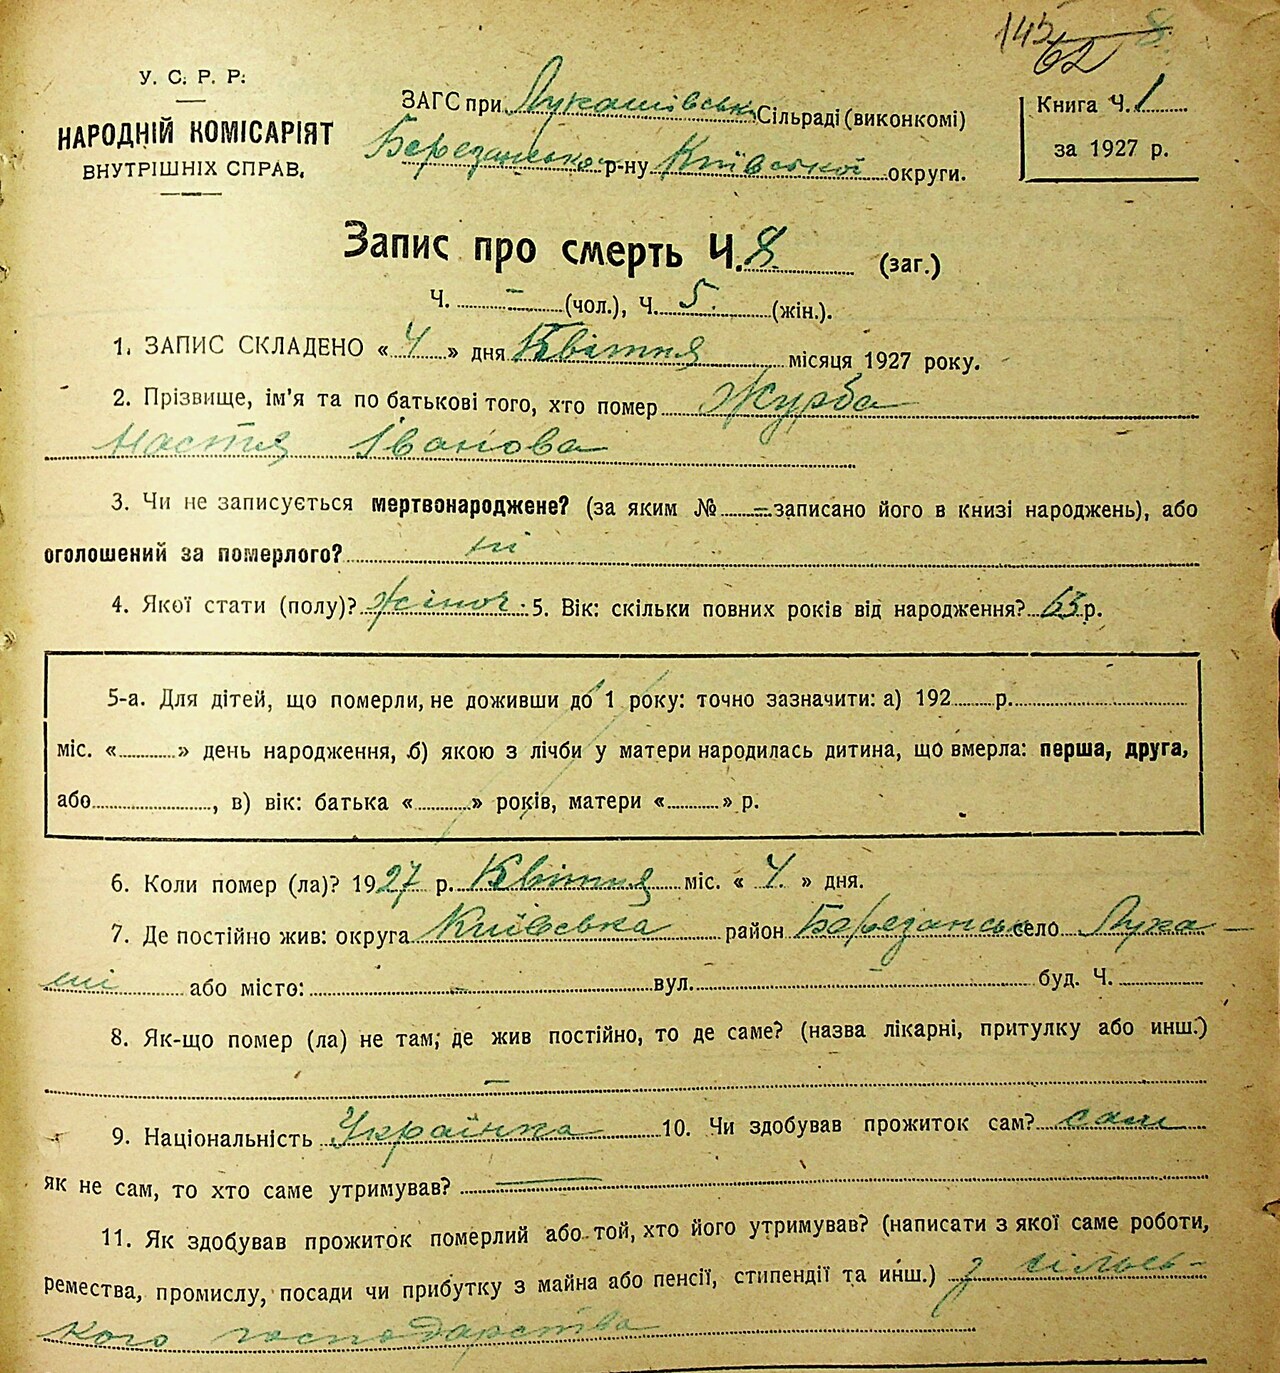 145 8.
62
У. С. Р. Р.
НАРОДНІЙ КОМІСАРІЯТ
ВНУТРІШНІХ СПРАВ.
ЗАГС при Лукашівськ Сільраді (виконкомі)
Березансько р-ну Київської округи.
Книга Ч. 1
за 1927 р.
Запис про смерть Ч. 8. (заг.)
Ч. – (чол.), Ч. 5. (жін.).
1. ЗАПИС СКЛАДЕНО « 4 » дня Квітня місяця 1927 року.
2. Прізвище, ім'я та по батькові того, хто помер Журба
Настя Іванова
3. Чи не записується мертвонароджене? (за яким № = записано його в книзі народжень), або
оголошений за померлого? ні
4. Якої стати (полу)? жіноч. 5. Вік: скільки повних років від народження? 63 р.
5-а. Для дітей, що померли, не доживши до 1 року: точно зазначити: а) 192 р.
міс. « » день народження, б) якою з лічби у матери народилась дитина, що вмерла: перша, друга,
або , в) вік: батька « » років, матери « » р.
6. Коли помер (ла)? 1927 р. Квітня міс. « 4. » дня.
7. Де постійно жив: округа Київська район Березанськ село Лука-
ші або місто: – вул. – буд. Ч.
8. Як-що помер (ла) не там, де жив постійно, то де саме? (назва лікарні, притулку або инш.)
–
9. Національність Українка 10. Чи здобував прожиток сам? сам
як не сам, то хто саме утримував? —
11. Як здобував прожиток померлий або той, хто його утримував? (написати з якої саме роботи,
ремества, промислу, посади чи прибутку з майна або пенсії, стипендії та инш.) з сільсь-
кого господарства